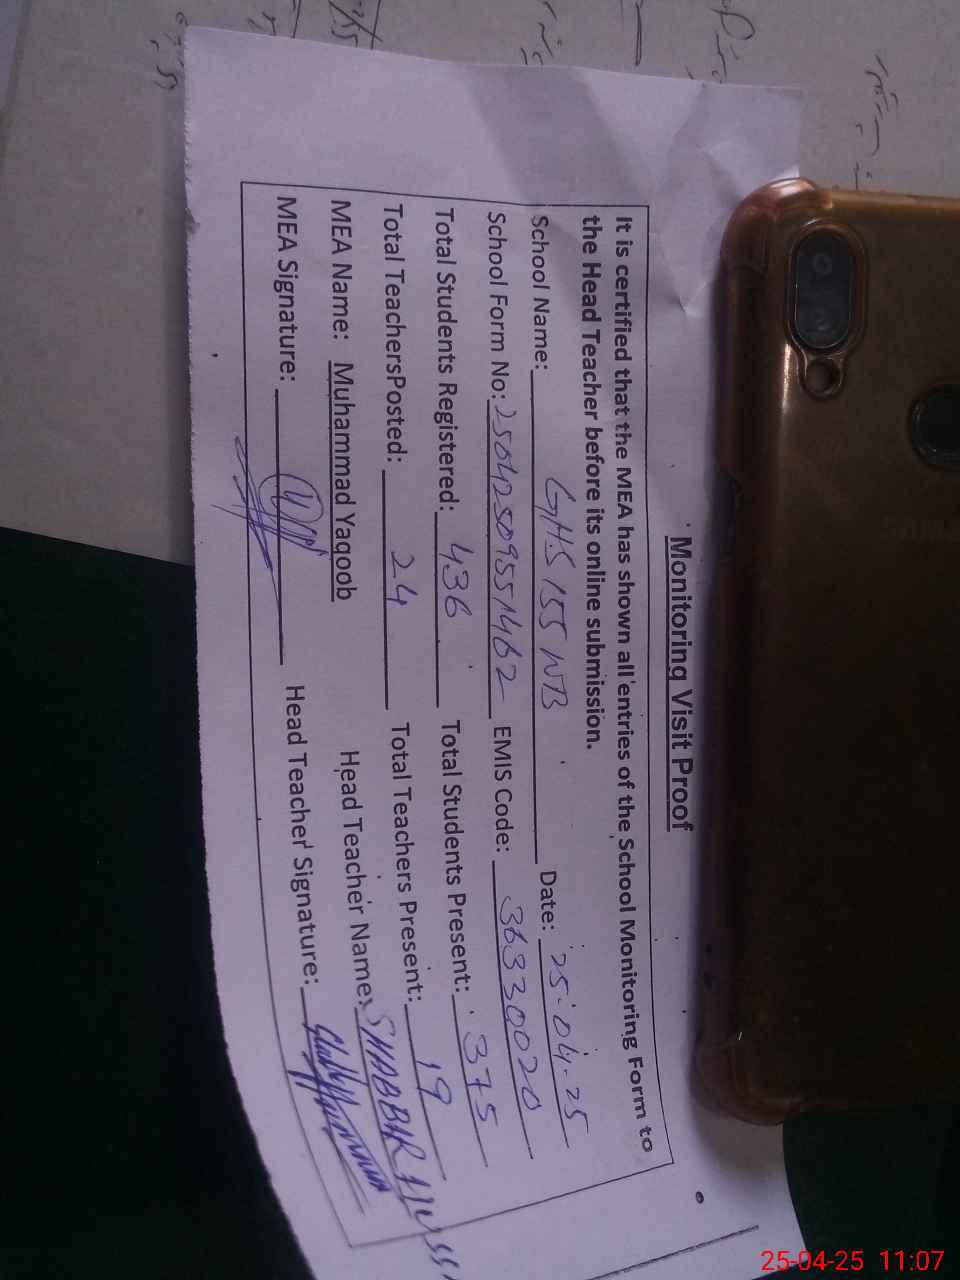 Monitoring Visit Proof
It is certified that the MEA has shown all entries of the School Monitoring Form to
the Head Teacher before its online submission.
School Name: GHS 155 WB Date: 25.04.25
School Form No: 25042509551462 EMIS Code: 36330020
Total Students Registered: 436 Total Students Present: 375
Total TeachersPosted: 24 Total Teachers Present: 19
MEA Name: Muhammad Yaqoob Head Teacher Name: SHABBIR
MEA Signature: Head Teacher Signature:
25-04-25 11:07